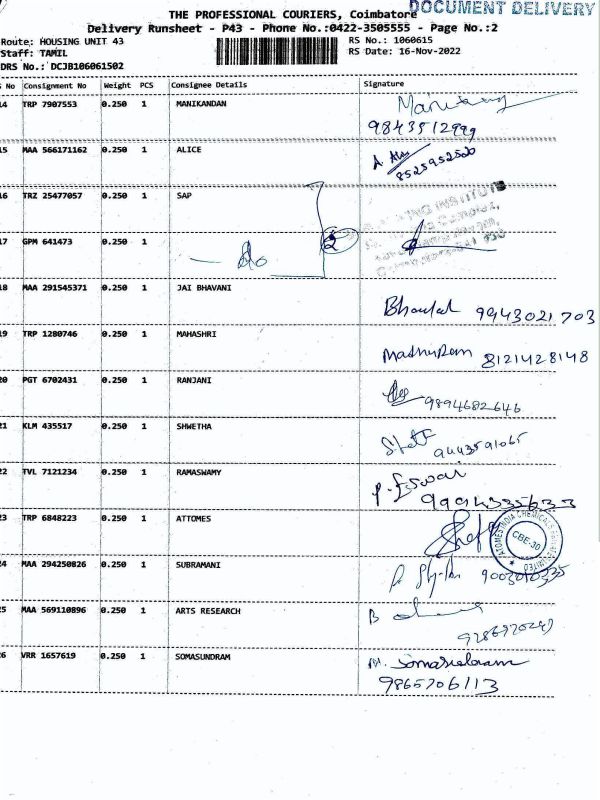 THE PROFESSIONAL COURIERS, Coimbatore
DOCUMENT DELIVERY
Delivery Runsheet - P43 - Phone No.:0422-3505555 - Page No.:2
Route: HOUSING UNIT 43
RS No.: 1060615
Staff: TAMIL
RS Date: 16-Nov-2022
DRS No.: DCJB106061502
No Consignment No Weight PCS Consignee Details Signature
14 TRP 7907553 0.250 1 MANIKANDAN
9843512999
15 MAA 566171162 0.250 1 ALICE
8525952520
16 TRZ 25477057 0.250 1 SAP
17 GPM 641473 0.250 1
2
18 MAA 291545371 0.250 1 JAI BHAVANI
9943021703
19 TRP 1280746 0.250 1 MAHASHRI
8121428148
20 PGT 6702431 0.250 1 RANJANI
9894682646
21 KLM 435517 0.250 1 SHWETHA
9443591065
22 TVL 7121234 0.250 1 RAMASWAMY
P. Eswar
23 TRP 6848223 0.250 1 ATTOMES
ATOMES INDIA CHEMICALS PRIVATE LIMITED
CBE-30
24 MAA 294250826 0.250 1 SUBRAMANI
25 MAA 569110896 0.250 1 ARTS RESEARCH
B
26 VRR 1657619 0.250 1 SOMASUNDRAM
M. Somasundaram
9865706113